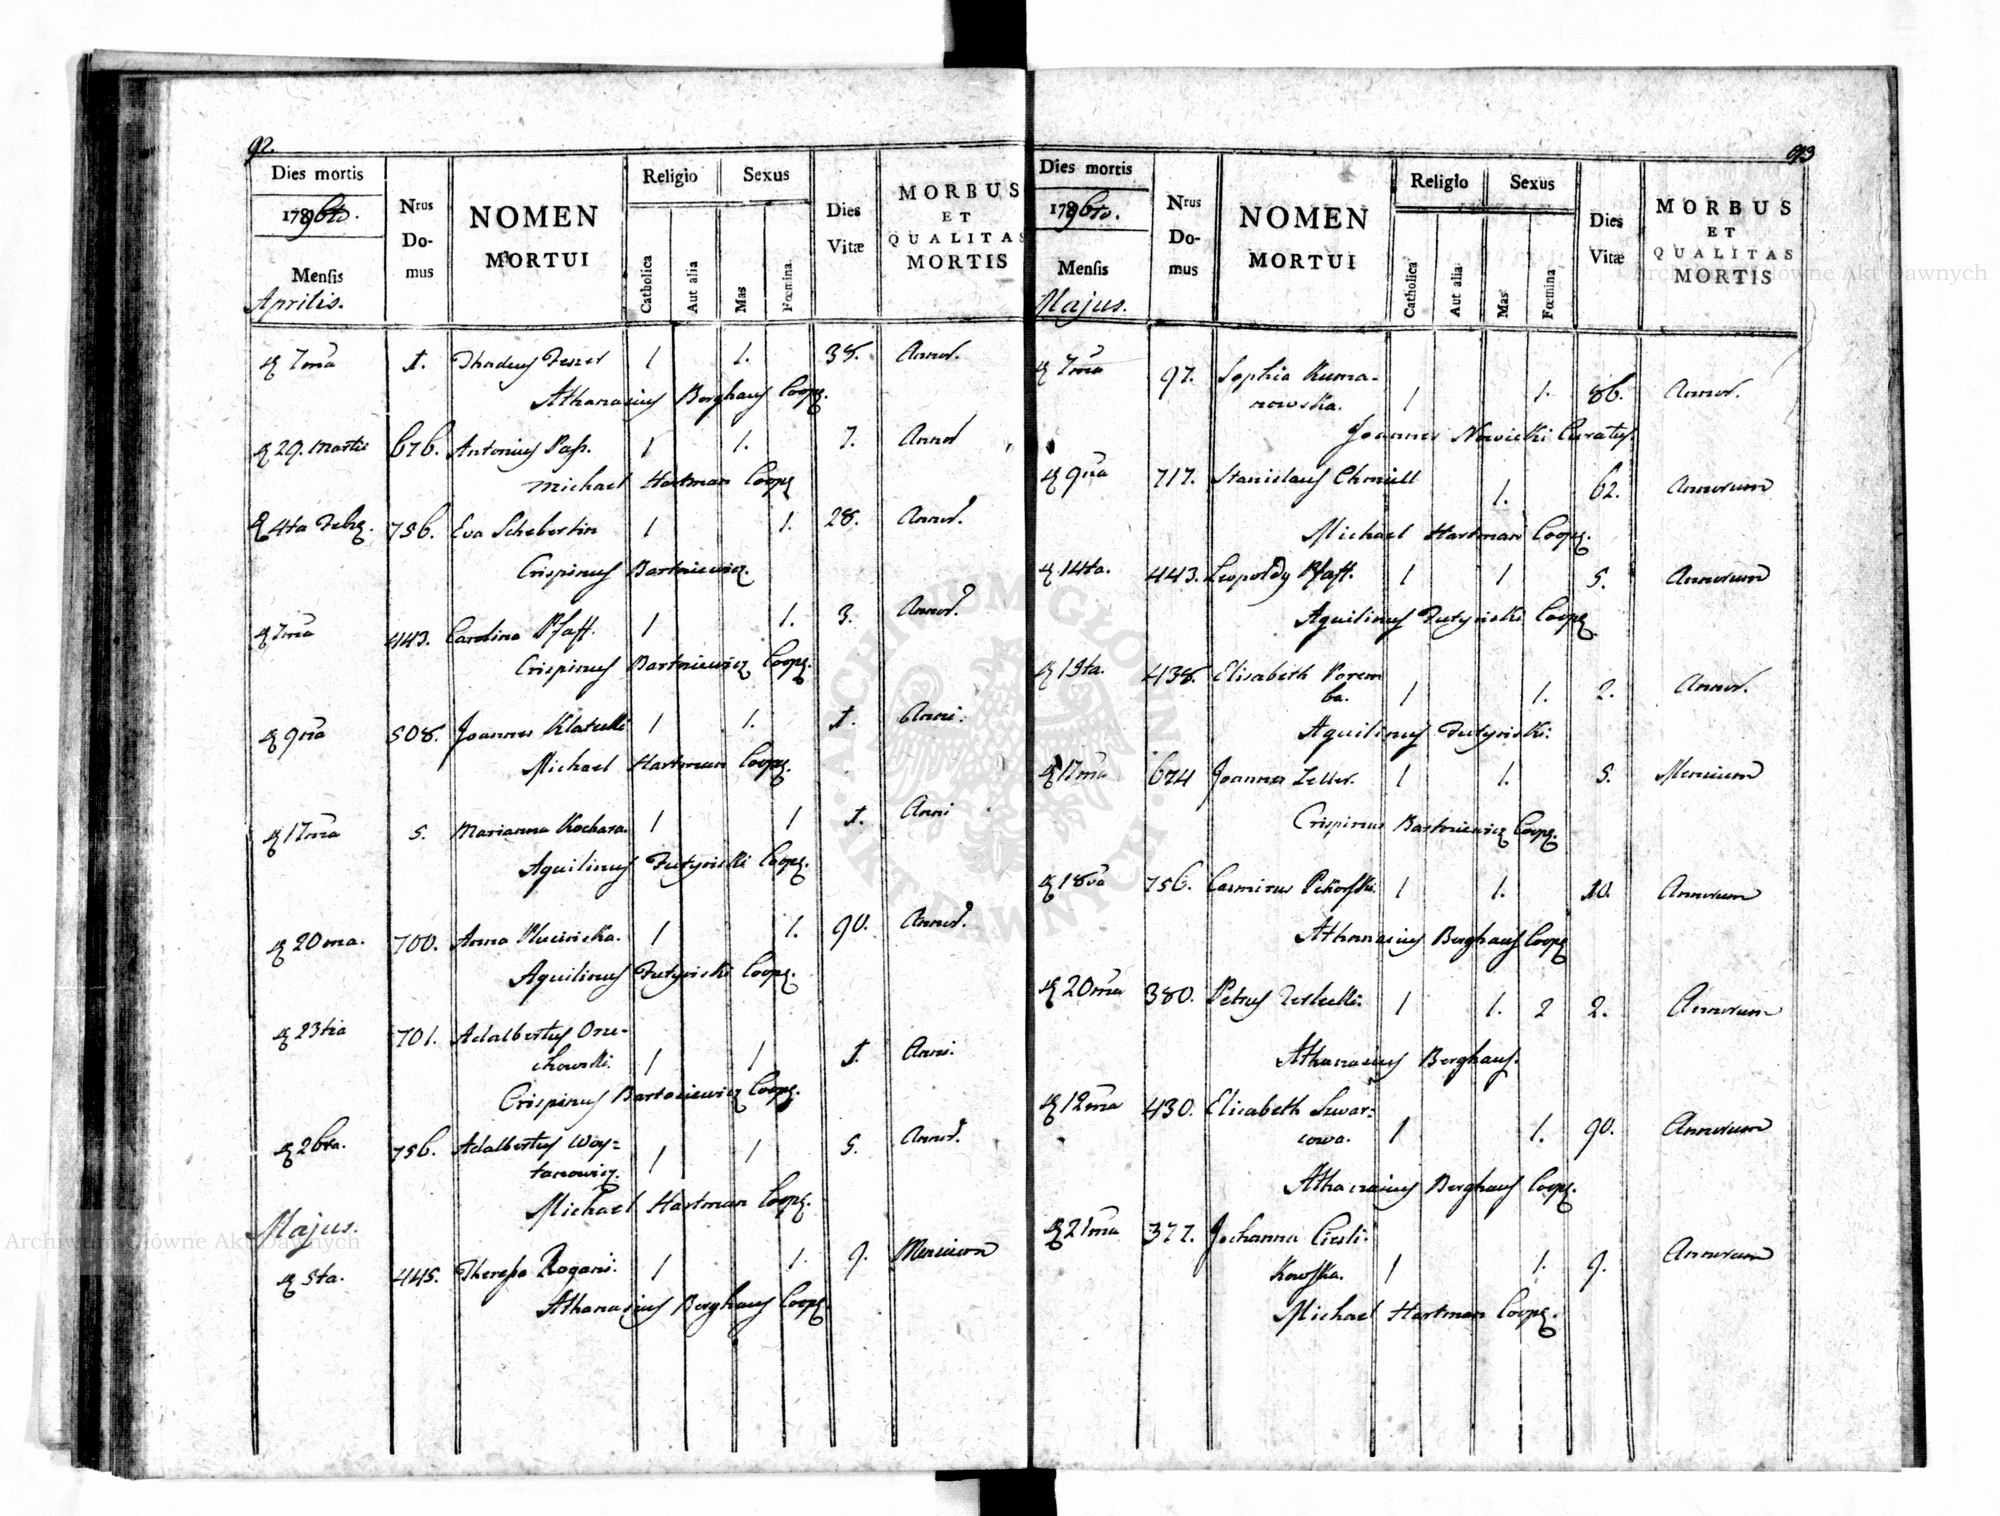 92.
Dies mortis
1796to.
Mensis
Aprilis.
Nrus Do-mus
NOMEN
MORTUI
Religio
Catholica
Aut alia
Sexus
Mas
Fœmina
Dies Vitæ
MORBUS
ET
QUALITAS
MORTIS
7ma 1. Thadeus 1 1. 38. Annor.
Athanasius Berghaus Coop.
29. Martii 676. Antonius Pass. 1 1. 7. Annor
Michael Hartman Coop
4ta Febr. 756. Eva Schebertin 1 1. 28. Annor.
Crispinus Bartniewicz.
7ma 443. Carolina Pfaff. 1 1. 3. Annor.
Crispinus Bartniewicz Coop.
9na 508. Joannes 1 1. 1. Anni.
Michael Hartman Coop.
17ma 5. Marianna Kochara. 1 1 1. Anni
Aquilinus Coop.
20ma. 700. Anna Plucinska. 1 1. 90. Annor.
Aquilinus Coop.
23tia 701. Adalbertus Orze-
chowski. 1 1 1. Anni.
Crispinus Bartniewicz Coop.
26ta. 756. Adalbertus Woy-
tanowicz. 1 1 5. Annor.
Michael Hartman Coop.
Majus.
5ta. 445. Theresa 1 1. 9. Mensium
Athanasius Berghaus Coop.
93
Dies mortis
1796to.
Mensis
Majus.
Nrus Do-mus
NOMEN
MORTUI
Religio
Catholica
Aut alia
Sexus
Mas
Fœmina
Dies Vitæ
MORBUS
ET
QUALITAS
MORTIS
7ma 97. Sophia Kuma-
nowska. 1 1. 86. Annor.
Joannes Nowicki Curatus.
9na 717. Stanislaus Chmiell 1. 62. Annorum
Michael Hartman Coop.
14ta. 443. Leopoldy Pfaff. 1 1 5. Annorum
Aquilinus Coop
15ta. 438. Elisabeth Porem
ba. 1 1. 2. Annor.
Aquilinus
17ma 674 Joannes Zeller. 1 1. 5. Mensium
Crispinus Bartniewicz Coop.
18va 756. Casmirus 1 1. 10. Annorum
Athanasius Berghaus Coop
20ma 380. Petrus 1 1. 2 2. Annorum
Athanasius Berghaus.
12ma 430. Elisabeth Szwar-
cowa. 1 1. 90. Annorum
Athanasius Berghaus Coop.
21ma 377. Johanna Ciesli-
kowska. 1 1. 9. Annorum
Michael Hartman Coop.
ARCHIWUM GŁÓWNE AKT DAWNYCH
Archiwum Główne Akt Dawnych
Archiwum Główne Akt Dawnych